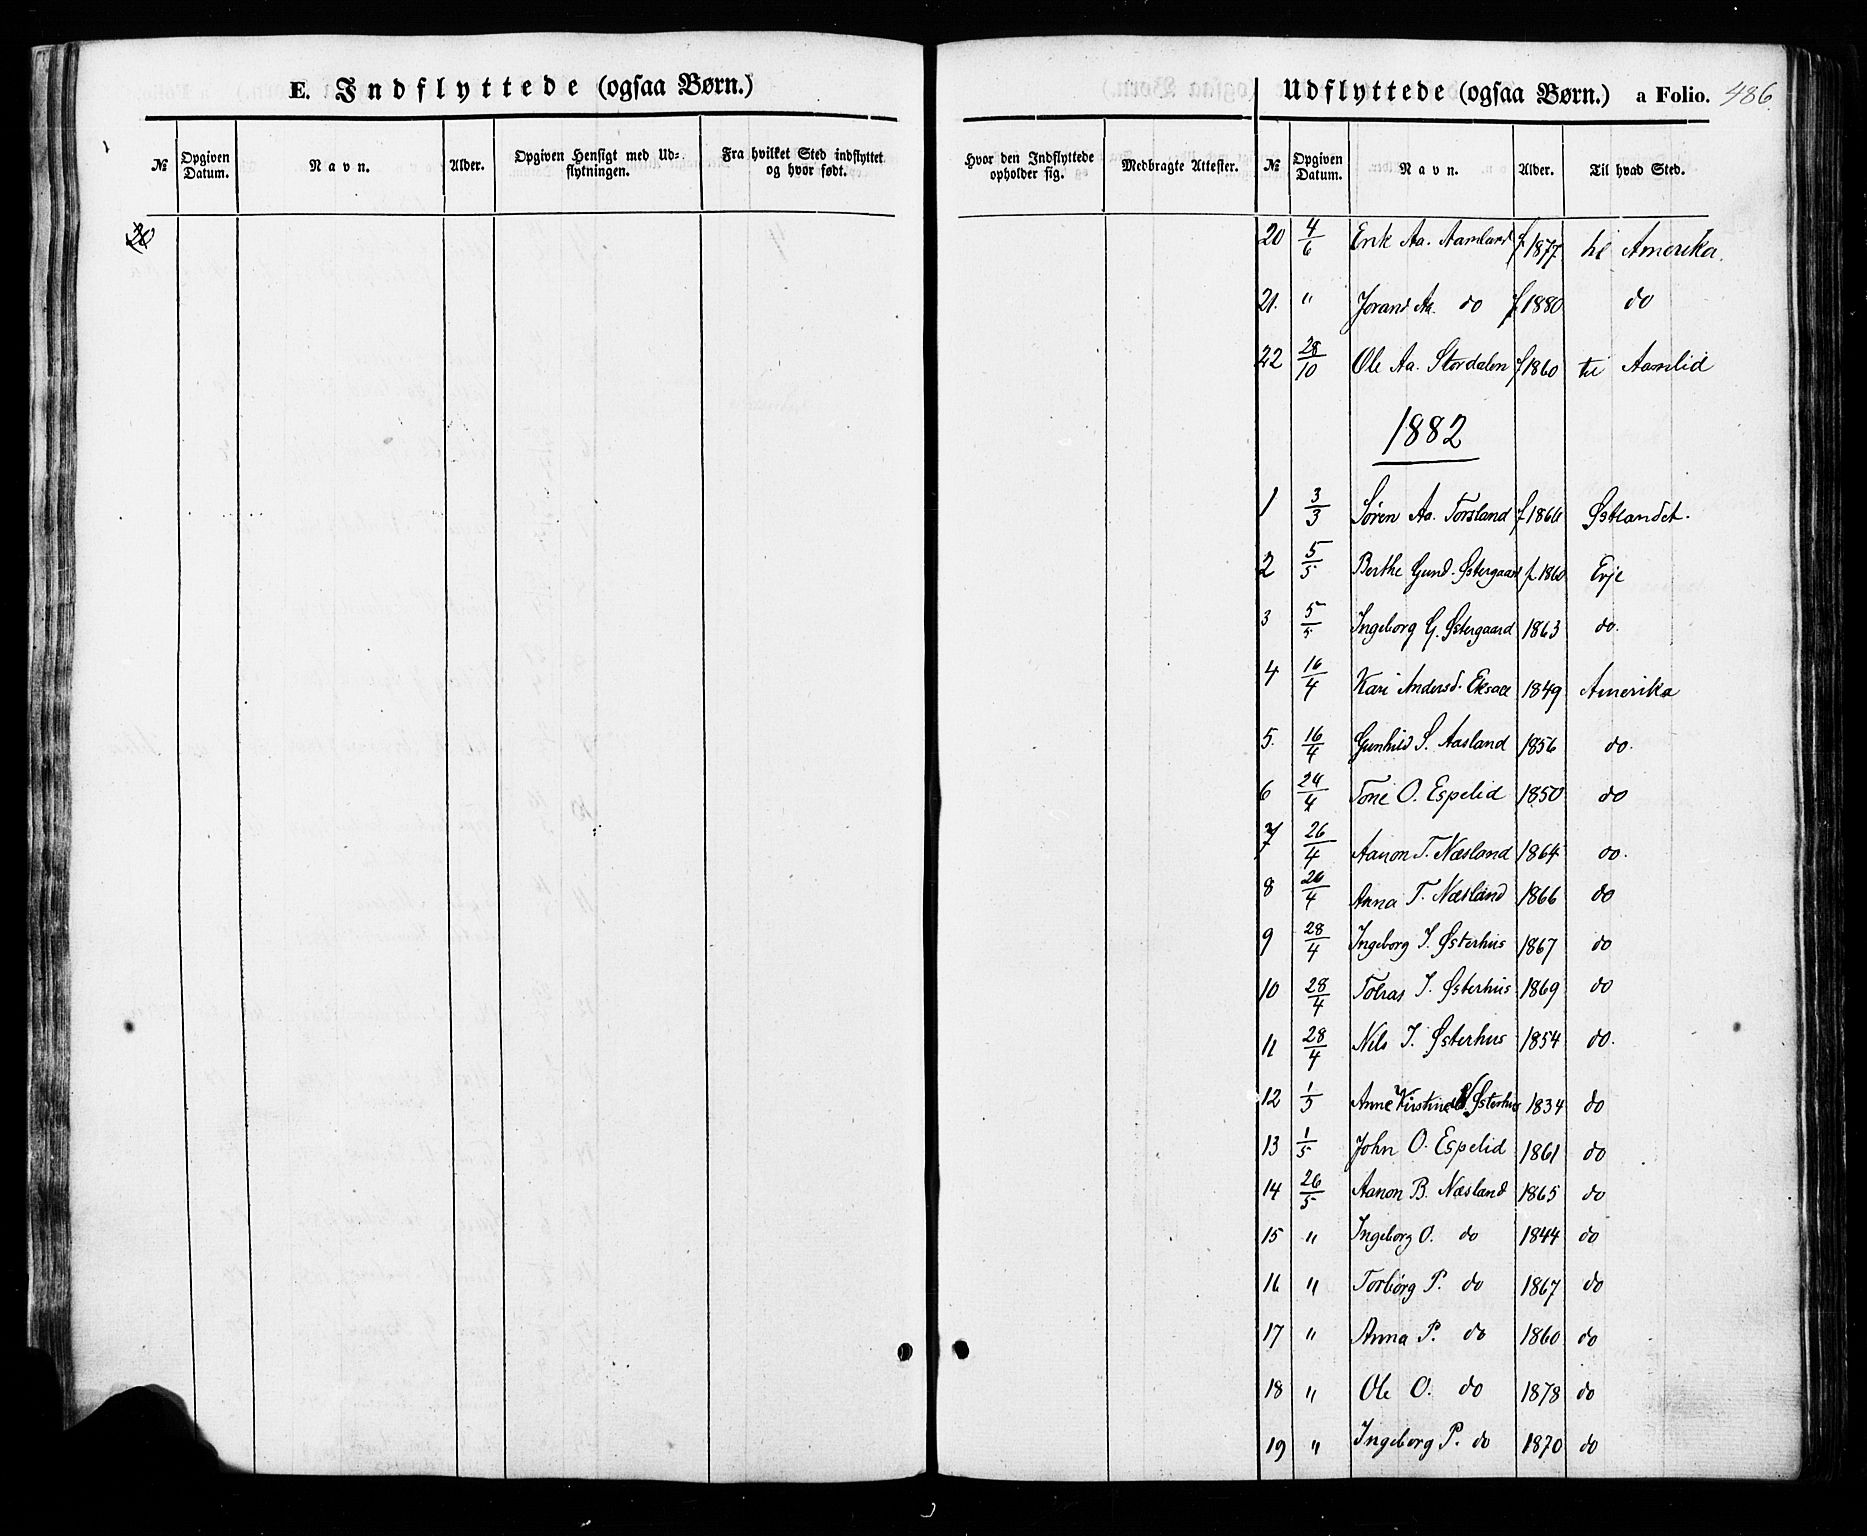 E. Indflyttede (ogsaa Børn.)
№ Opgiven Datum. Navn. Alder. Opgiven Hensigt med Udflytningen. Fra hvilket Sted indflyttet og hvor født.
20
Udflyttede (ogsaa Børn.) a Folio. 486.
Hvor den Indflyttede opholder sig. Medbragte Attester. № Opgiven Datum. Navn. Alder. Til hvad Sted.
20 4/6 Erik Aa. Aamland f 1877 til Amerika.
21. " Jorand Aa. do f 1880 do
22 28/10 Ole Aa. Stordalen f 1860 til Aamlid
1882
1 3/3 Søren Aa. Torsland f 1866 Østlandet.
2 5/5 Berthe Gund. Østergaard f. 1860 Evje
3 5/5 Ingeborg G. Østergaard 1863 do.
4 16/4 Kari Andersd. 1849 Amerika
5. 16/4 Gunhild S. Aasland 1856 do.
6 24/4 Tone O. Espelid 1850 do
7 26/4 Aanon T. Næsland 1864 do.
8 26/4 Anna T. Næsland 1866 do
9 28/4 Ingeborg J. Østerhus 1867 do
10 28/4 J. Østerhus 1869 do
11 28/4 Nels J. Østerhus 1854 do.
12 1/5 Anne Kirstine Østerhus 1834 do
13 1/5 John O. Espelid 1861 do
14 26/5 Aanon B. Næsland 1865 do
15 " Ingeborg O. do 1844 do
16 " Torbørg P. do 1867 do
17 " Anna P. do 1860 do
18 " Ole O. do 1878 do
19 " Ingeborg P. do 1870 do